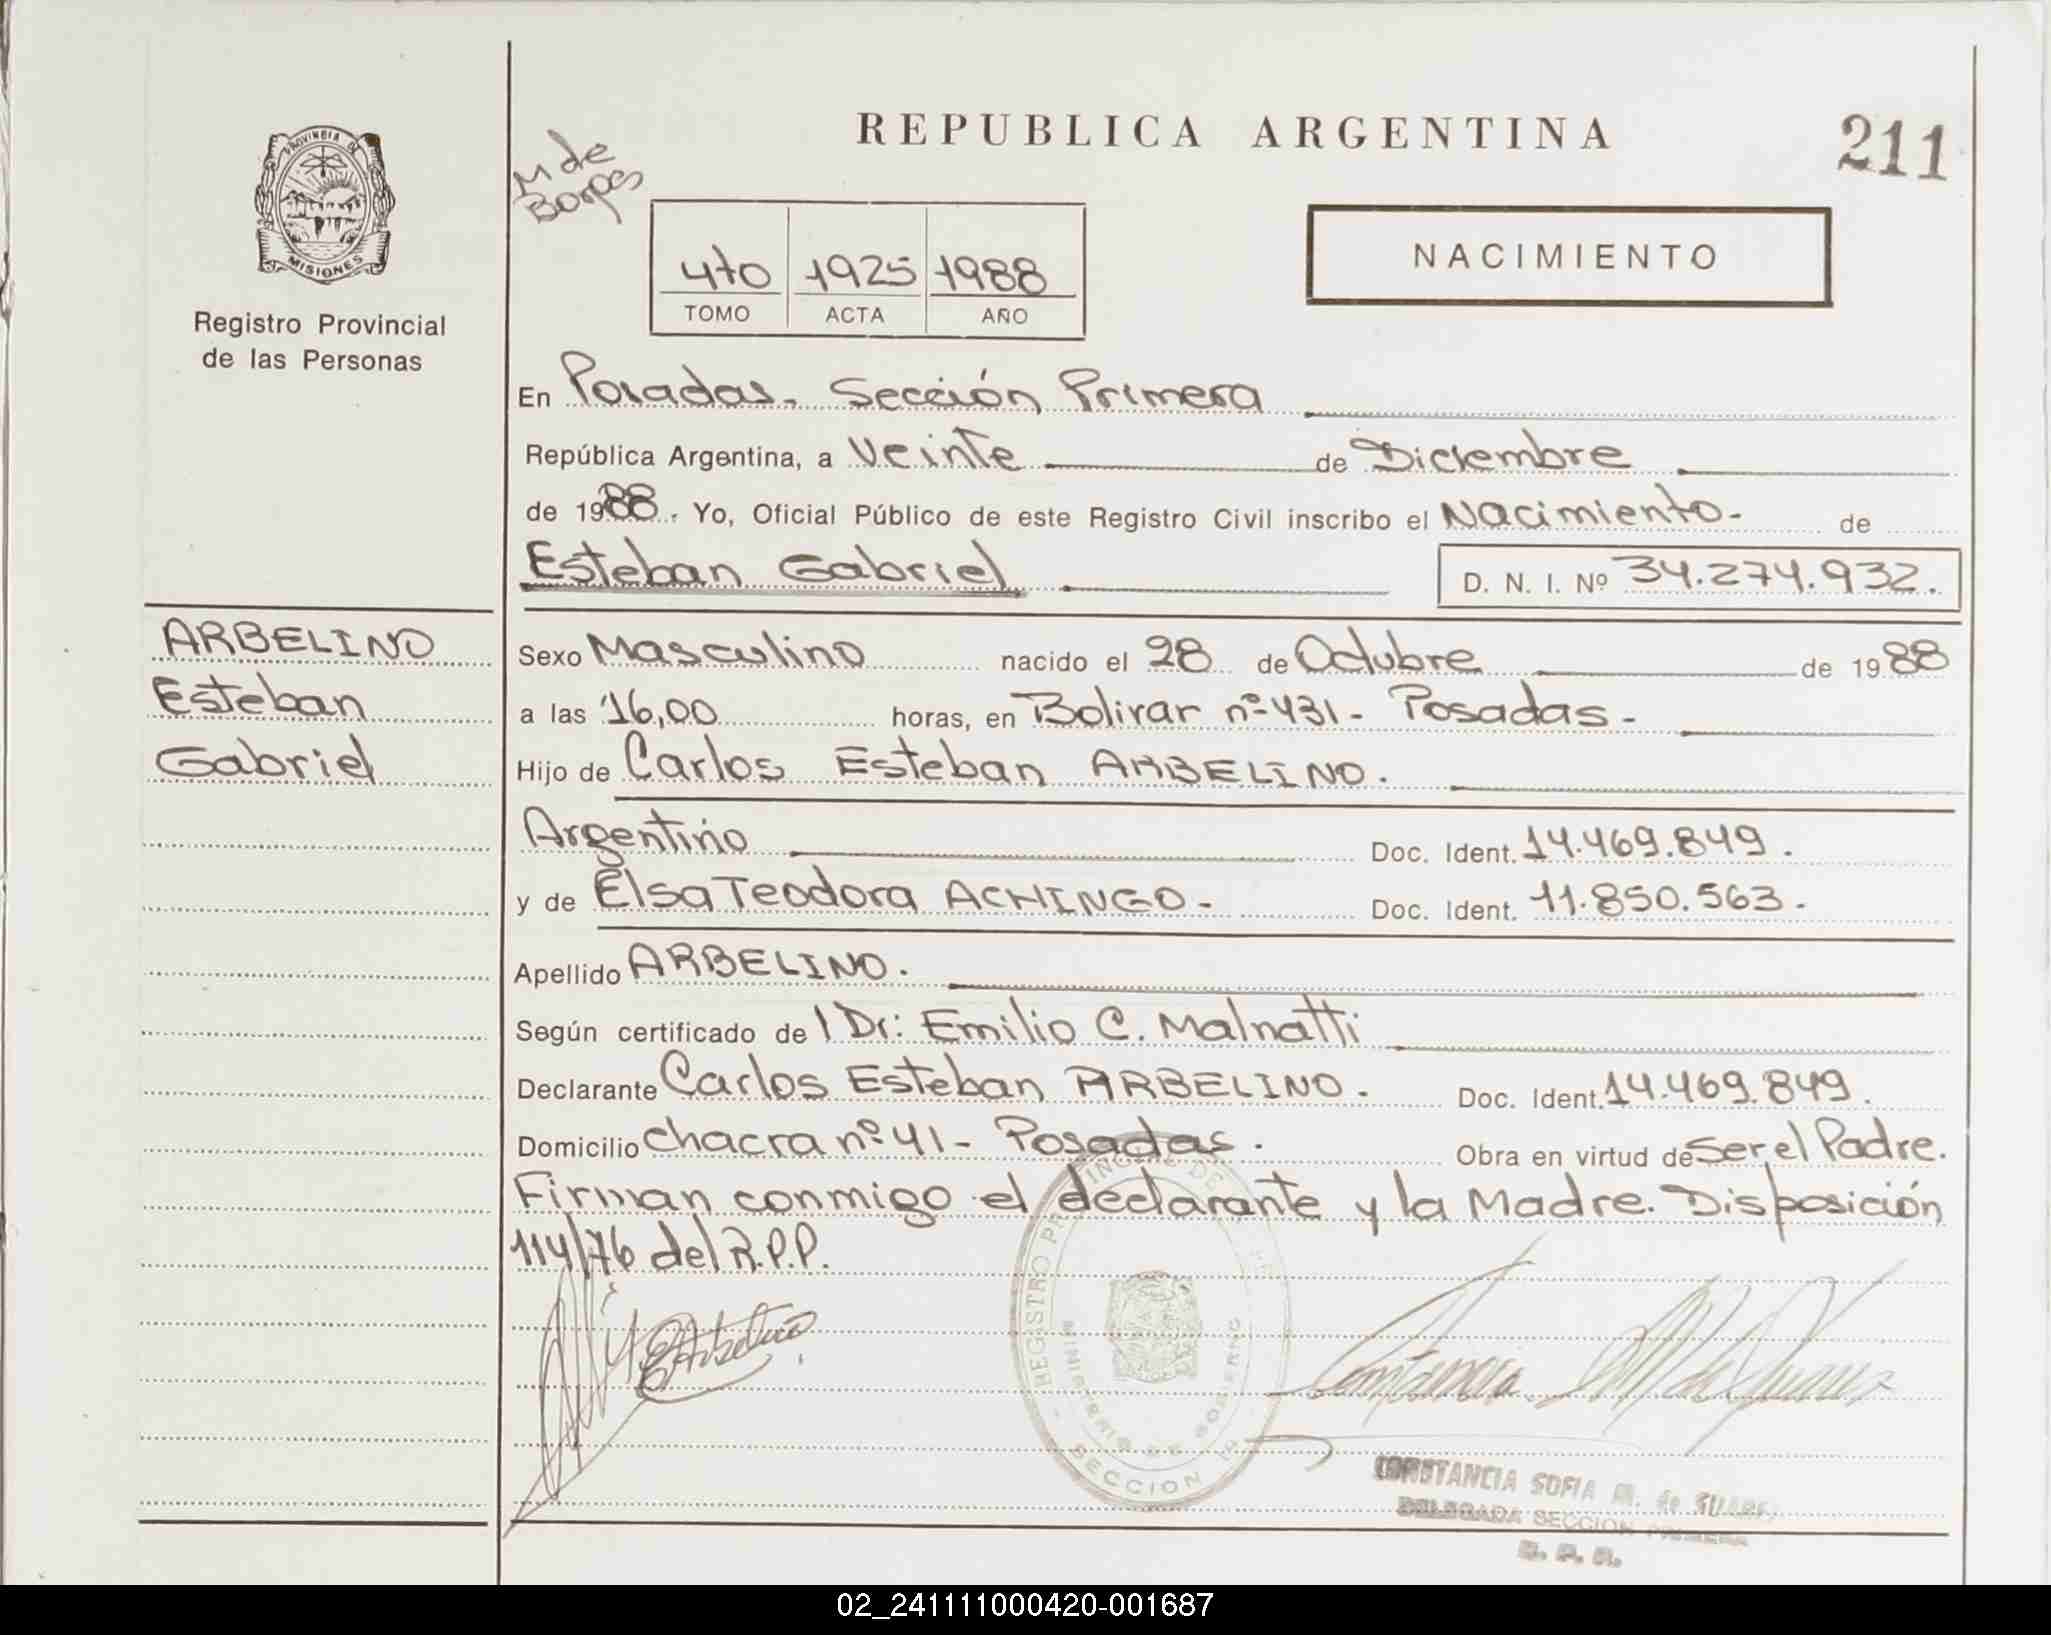 REPUBLICA ARGENTINA
211
M de
PROVINCIA DE
MISIONES
Registro Provincial
de las Personas
4to 1925 1988
TOMO ACTA AÑO
NACIMIENTO
En Posadas. Sección Primera
República Argentina, a Veinte de Diciembre
de 1988. Yo, Oficial Público de este Registro Civil inscribo el Nacimiento- de
Esteban Gabriel D. N. I. Nº 34.274.932.
ARBELINO
Esteban
Gabriel
Sexo Masculino nacido el 28 de Octubre de 1988
a las 16,00 horas, en Bolivar nº 431- Posadas-
Hijo de Carlos Esteban ARBELINO.
Argentino Doc. Ident. 14.469.849.
y de Elsa Teodora ACHINGO- Doc. Ident. 11.850.563-
Apellido ARBELINO.
Según certificado de l Dr: Emilio C. Malnatti
Declarante Carlos Esteban ARBELINO. Doc. Ident. 14.469.849.
Domicilio chacra nº 41- Posadas. Obra en virtud de ser el Padre.
Firman conmigo el declarante y la Madre. Disposición
114/76 del R.P.P.
REGISTRO
MINISTERIO DE GOBIERNO
SECCION 1a
CONSTANCIA SOFIA M. de SUAREZ
DELEGADA SECCION PRIMERA
R. P. P.
02_241111000420-001687